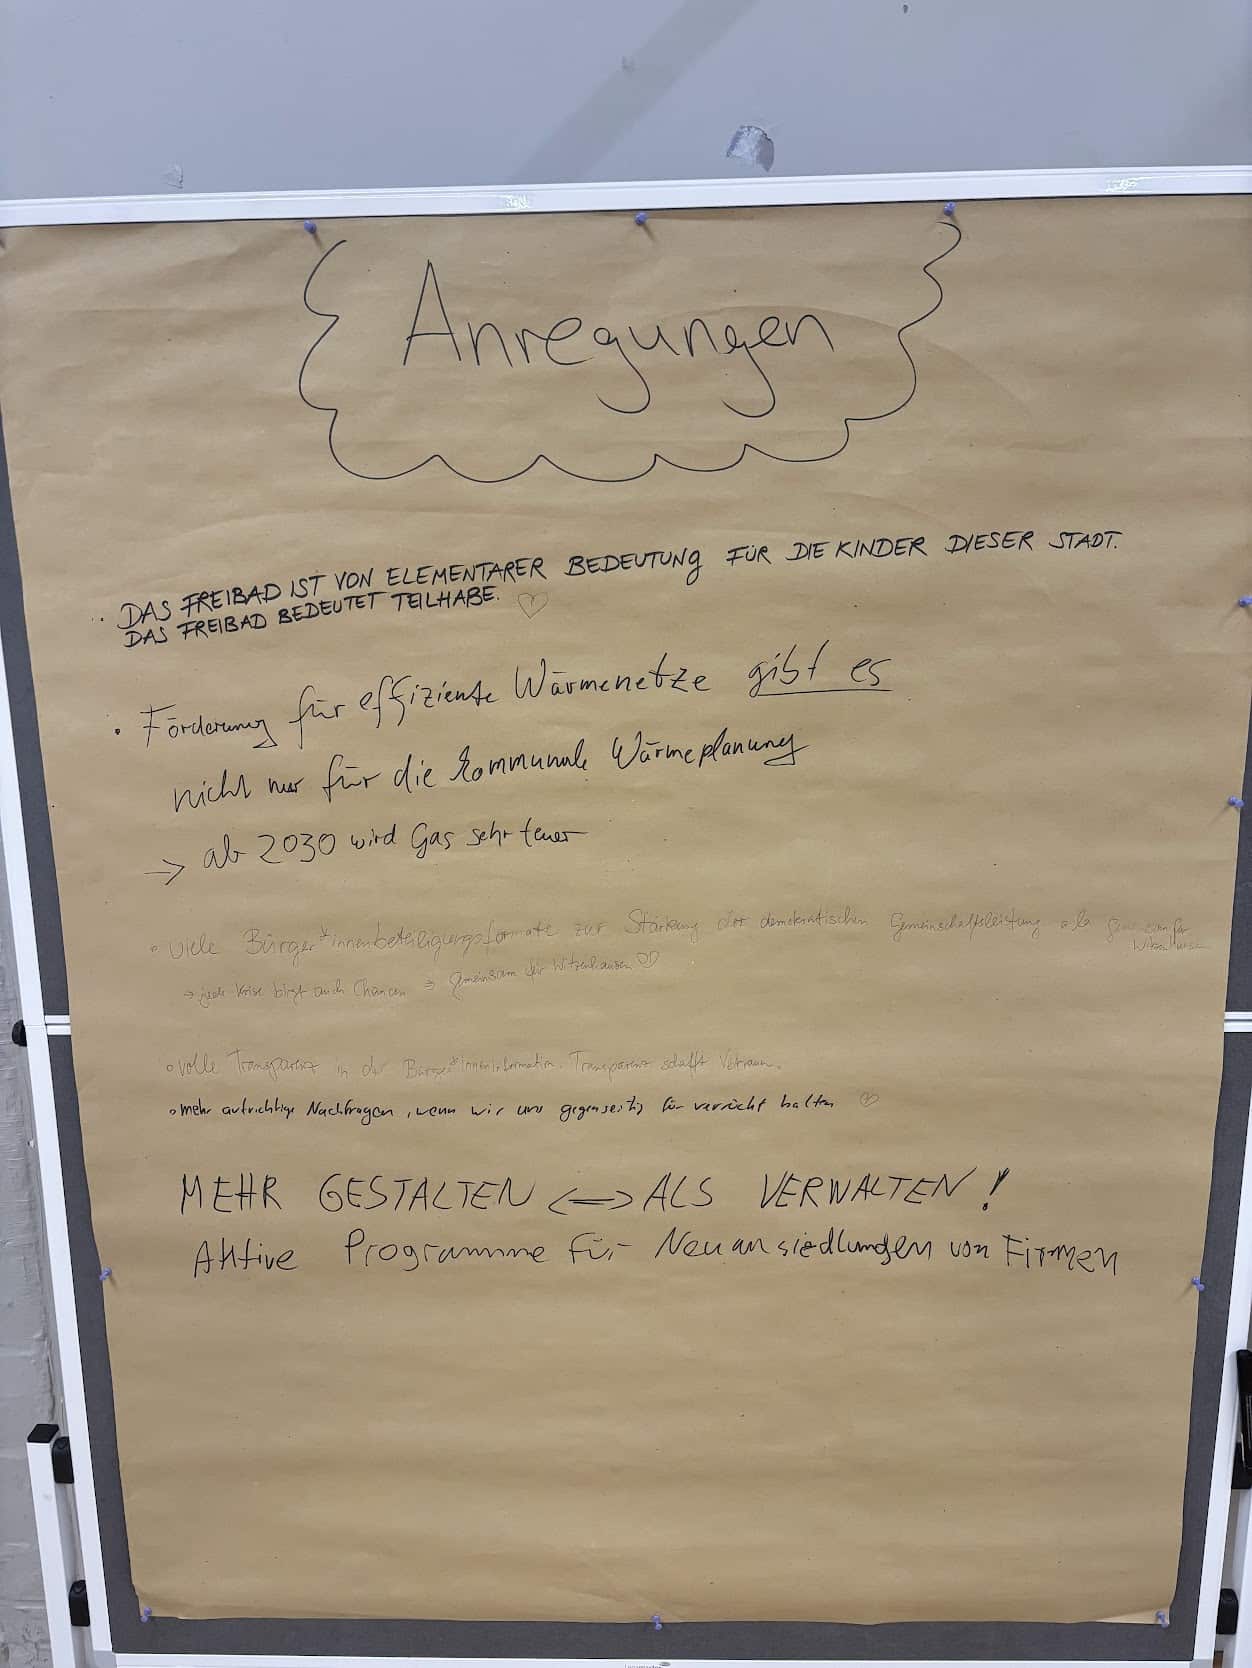 Anregungen
· DAS FREIBAD IST VON ELEMENTARER BEDEUTUNG FÜR DIE KINDER DIESER STADT.
DAS FREIBAD BEDEUTET TEILHABE. ♡
· Förderung für effiziente Wärmenetze gibt es
nicht nur für die kommunale Wärmeplanung
→ ab 2030 wird Gas sehr teuer
• viele Bürger*innenbeteiligungsformate zur Stärkung der demokratischen Gemeinschaftsleistung als
Witzenhausen
→ jede Krise birgt auch Chancen → gemeinsam für Witzenhausen ♡
• volle Transparenz in der Bürger*inneninformation. Transparenz schafft Vertrauen.
• mehr aufrichtige Nachfragen, wenn wir uns gegenseitig für verrückt halten ♡
MEHR GESTALTEN <=> ALS VERWALTEN!
Aktive Programme für Neuansiedlungen von Firmen